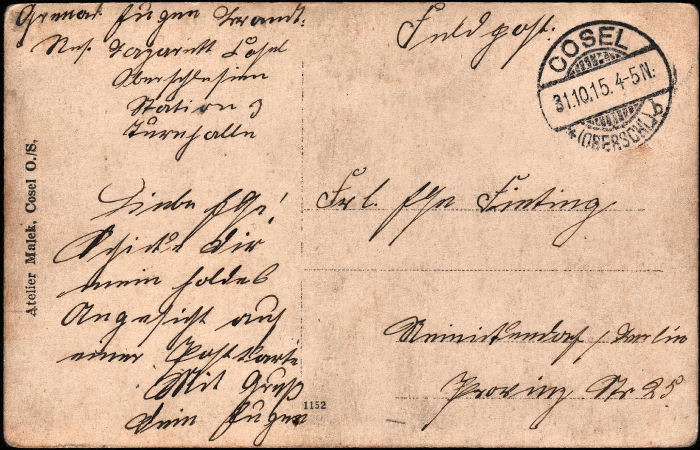 Grenad Eugen Brandt.
Res. Lazarett Cosel
Oberschlesien
Station 3
Turnhalle
Feldpost.
COSEL
31.10.15. 4-5N.
*(OBERSCHL.)b
Liebe Else!
Schicke Dir
mein holdes
Angesicht auf
einer Postkarte
Mit Gruß
Dein Eugen
Frl. Else Finting
Reinickendorf / Berlin
Provinz Str 25
Atelier Malek, Cosel O./S.
1152